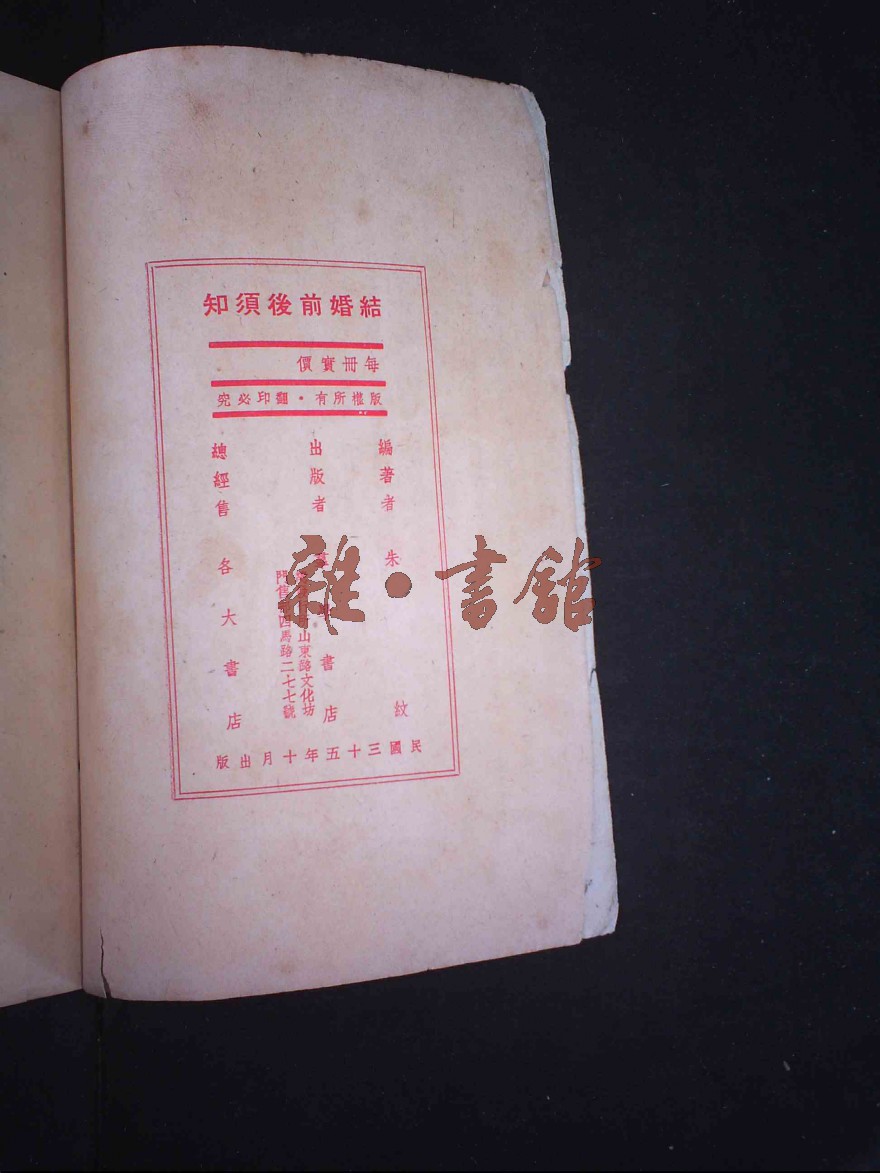 結婚前後須知
每冊實價
版權所有・翻印必究
編著者 朱 紋
出版者 書店
山東路文化坊
門售 四馬路二七七號
總經售 各大書店
民國三十五年十月出版
雜・書館